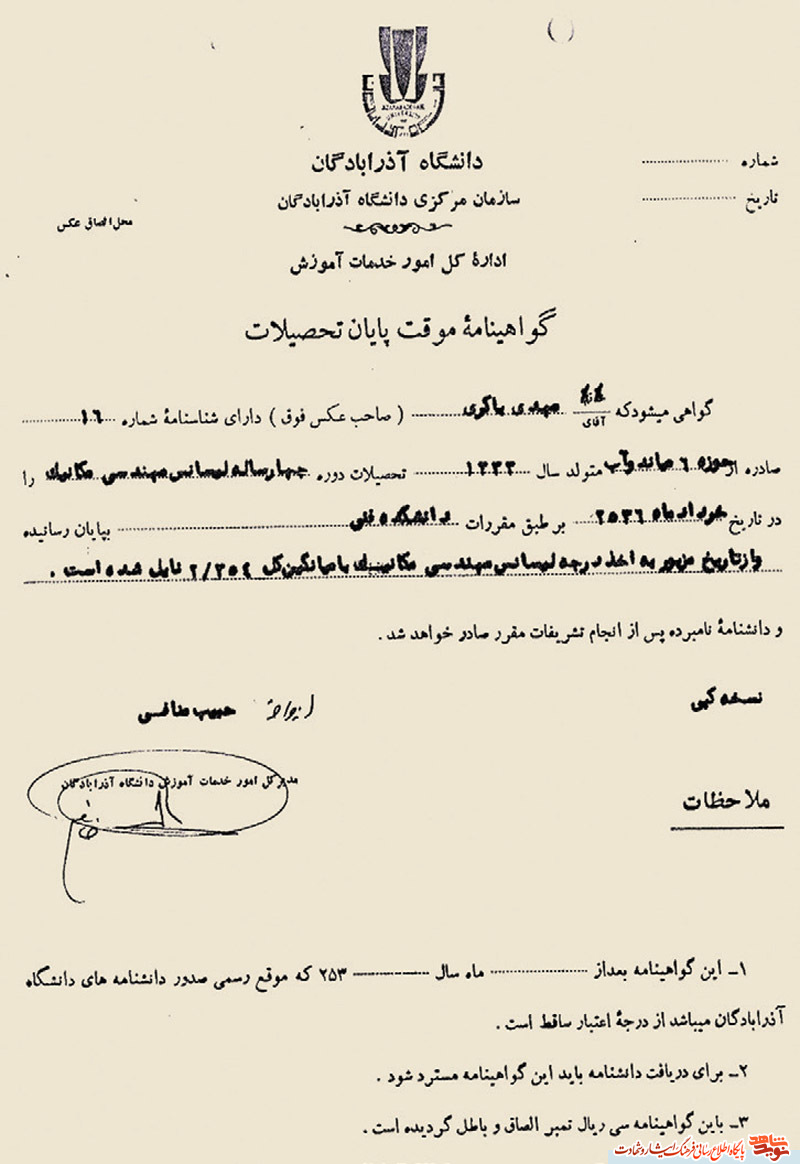 AZARABADEGAN
UNIVERSITY
دانشگاه آذرابادگان
شماره
سازمان مرکزی دانشگاه آذرابادگان
تاریخ
محل الصاق عکس
ادارهٔ کل امور خدمات آموزش
گواهینامهٔ موقت پایان تحصیلات
گواهی میشودکه آقای مهدی باکری ( صاحب عکس فوق ) دارای شناسنامهٔ شماره ۱۶
صادره از حوزه ۶ میاندوآب متولد سال ۱۳۳۳ تحصیلات دوره چهارساله لیسانس مهندسی مکانیک را
در تاریخ خردادماه ۲۵۳۶ بر طبق مقررات دانشکده فنی بپایان رسانیده
و از تاریخ مزبور به اخذ درجه لیسانس مهندسی مکانیک با میانگین کل ۲/۳۵۴ نایل شده است .
و دانشنامهٔ نامبرده پس از انجام تشریفات مقرر صادر خواهد شد .
نسخه کپی
حبیب
مدیر کل امور خدمات آموزش دانشگاه آذرابادگان
ملاحظات
۱ـ این گواهینامه بعداز ماه سال ۲۵۳ که موقع رسمی صدور دانشنامه های دانشگاه
آذرابادگان میباشد از درجهٔ اعتبار ساقط است .
۲ـ برای دریافت دانشنامه باید این گواهینامه مسترد شود .
۳ـ باین گواهینامه سی ریال تمبر الصاق و باطل گردیده است .
نوید شاهد پایگاه اطلاع رسانی فرهنگ ایثار و شهادت